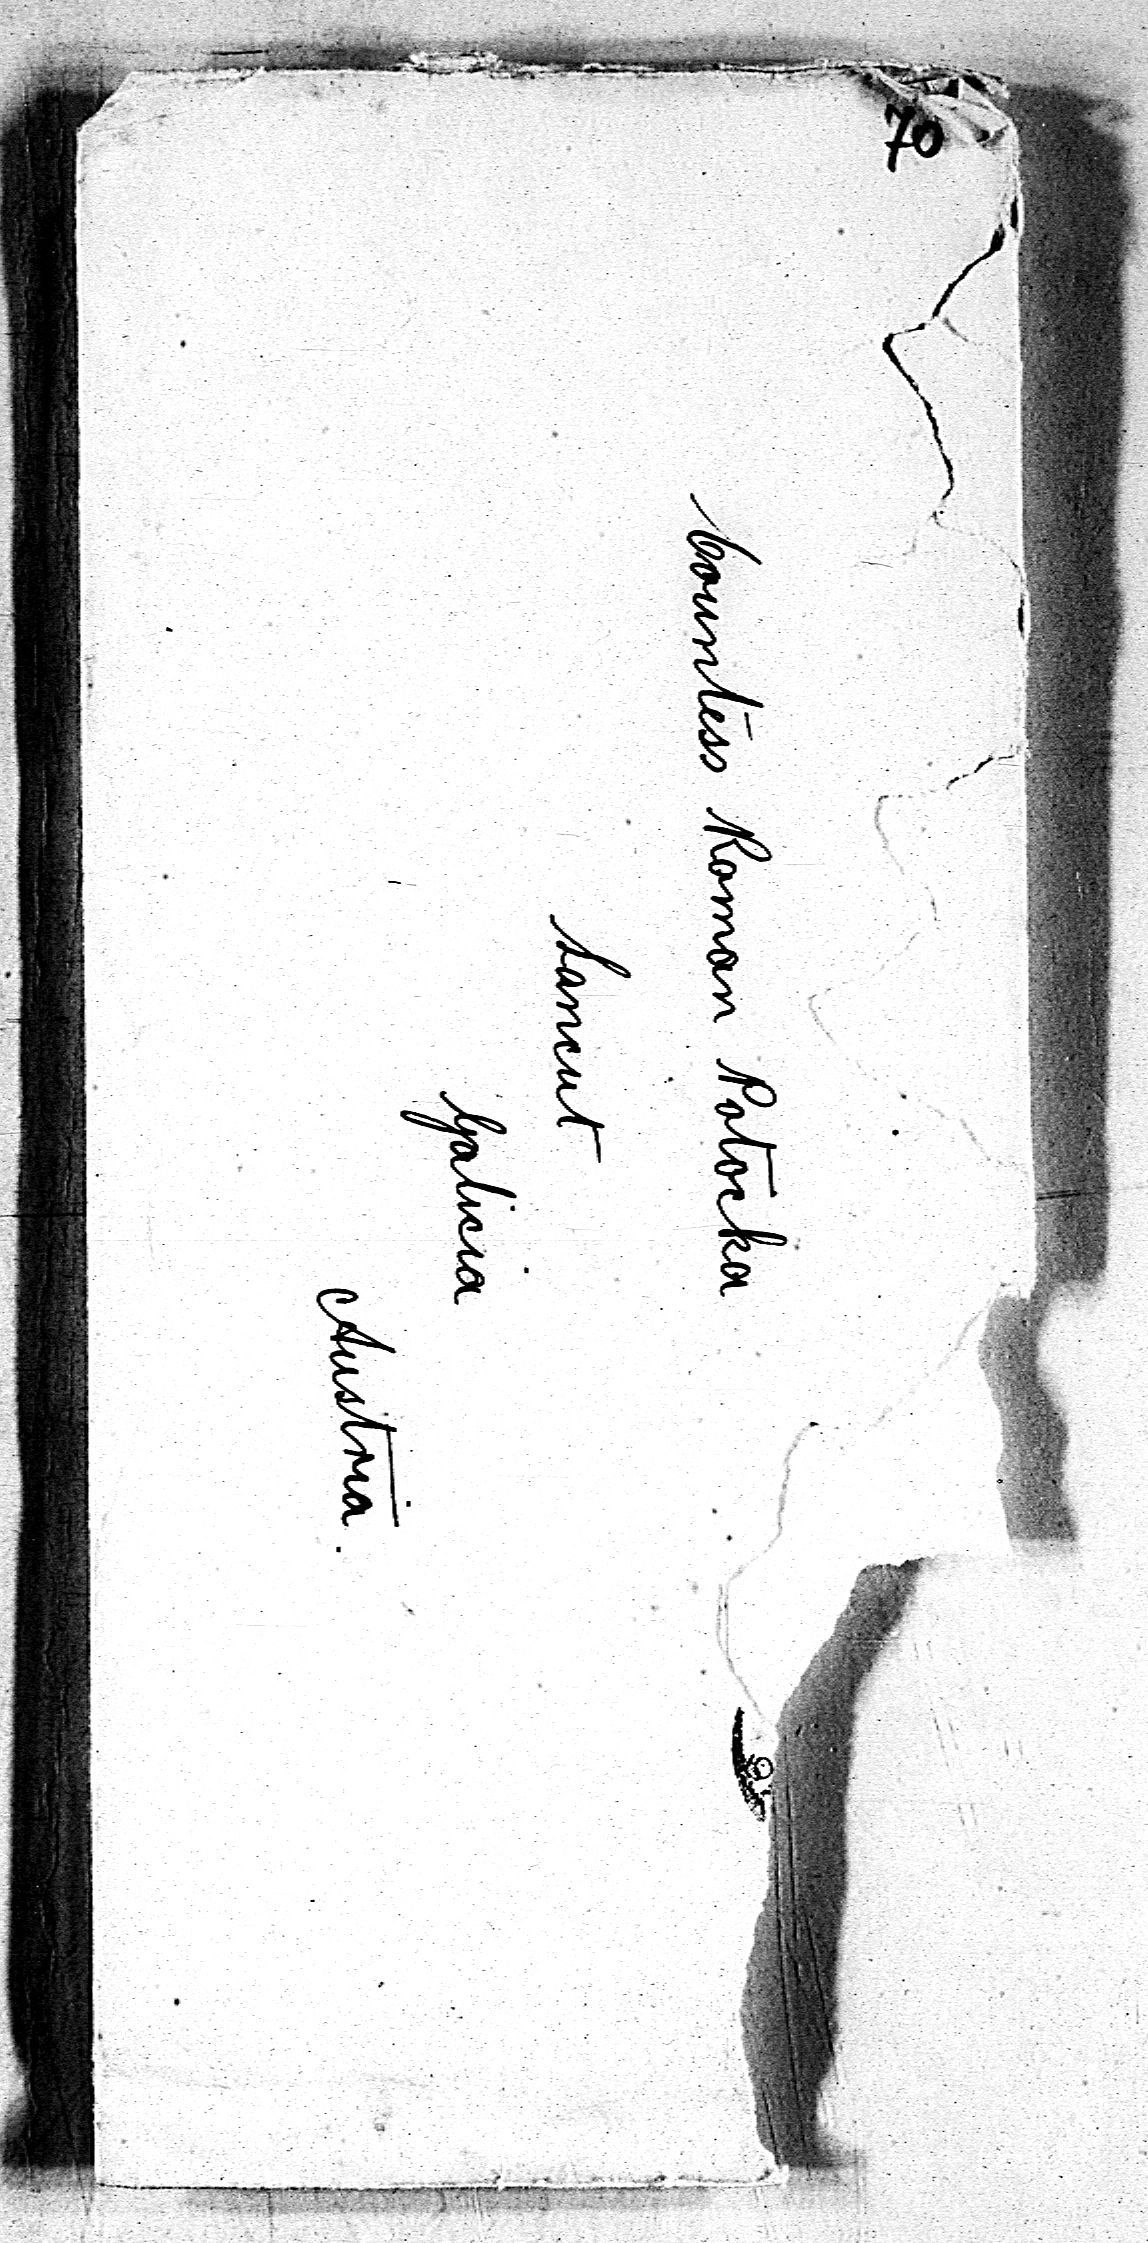 70
Countess Roman Potocka
Lancut
Galicia
Austria.